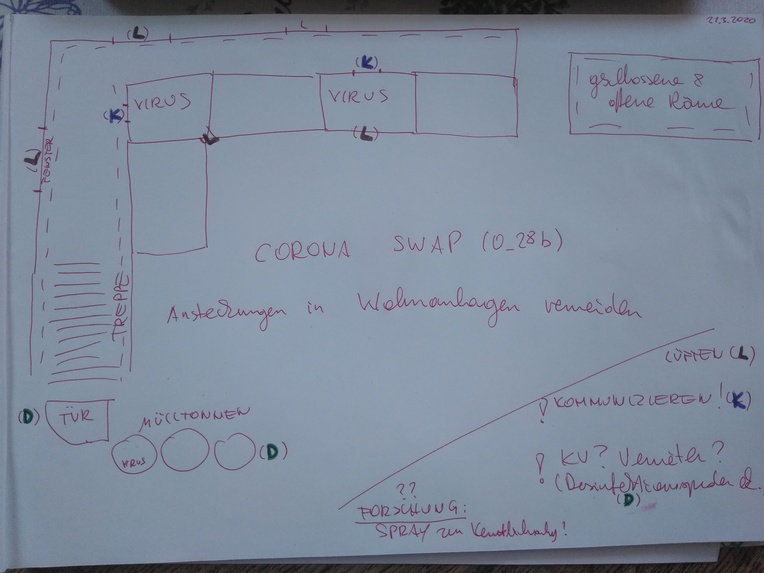 21.3.2020
(L)
L
(K)
geschlossene &
offene Räume
VIRUS
VIRUS
(K)
L
(L)
(L)
FENSTER
CORONA SWAP (0_28b)
TREPPE
Ansteckungen in Wohnanlagen vermeiden
LÜFTEN (L)
! KOMMUNIZIEREN! (K)
(D) TÜR
MÜLLTONNEN
VIRUS
(D)
! KV? Vermieter?
(Desinfektionsspender
(D)
??
FORSCHUNG:
SPRAY zur